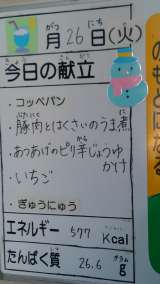 月26日(火)
今日の献立
・コッペパン
・豚肉とはくさいのうま煮
・あつあげのピリ辛じょうゆかけ
・いちご
・ぎゅうにゅう
エネルギー 577 Kcal
たんぱく質 26.6 g